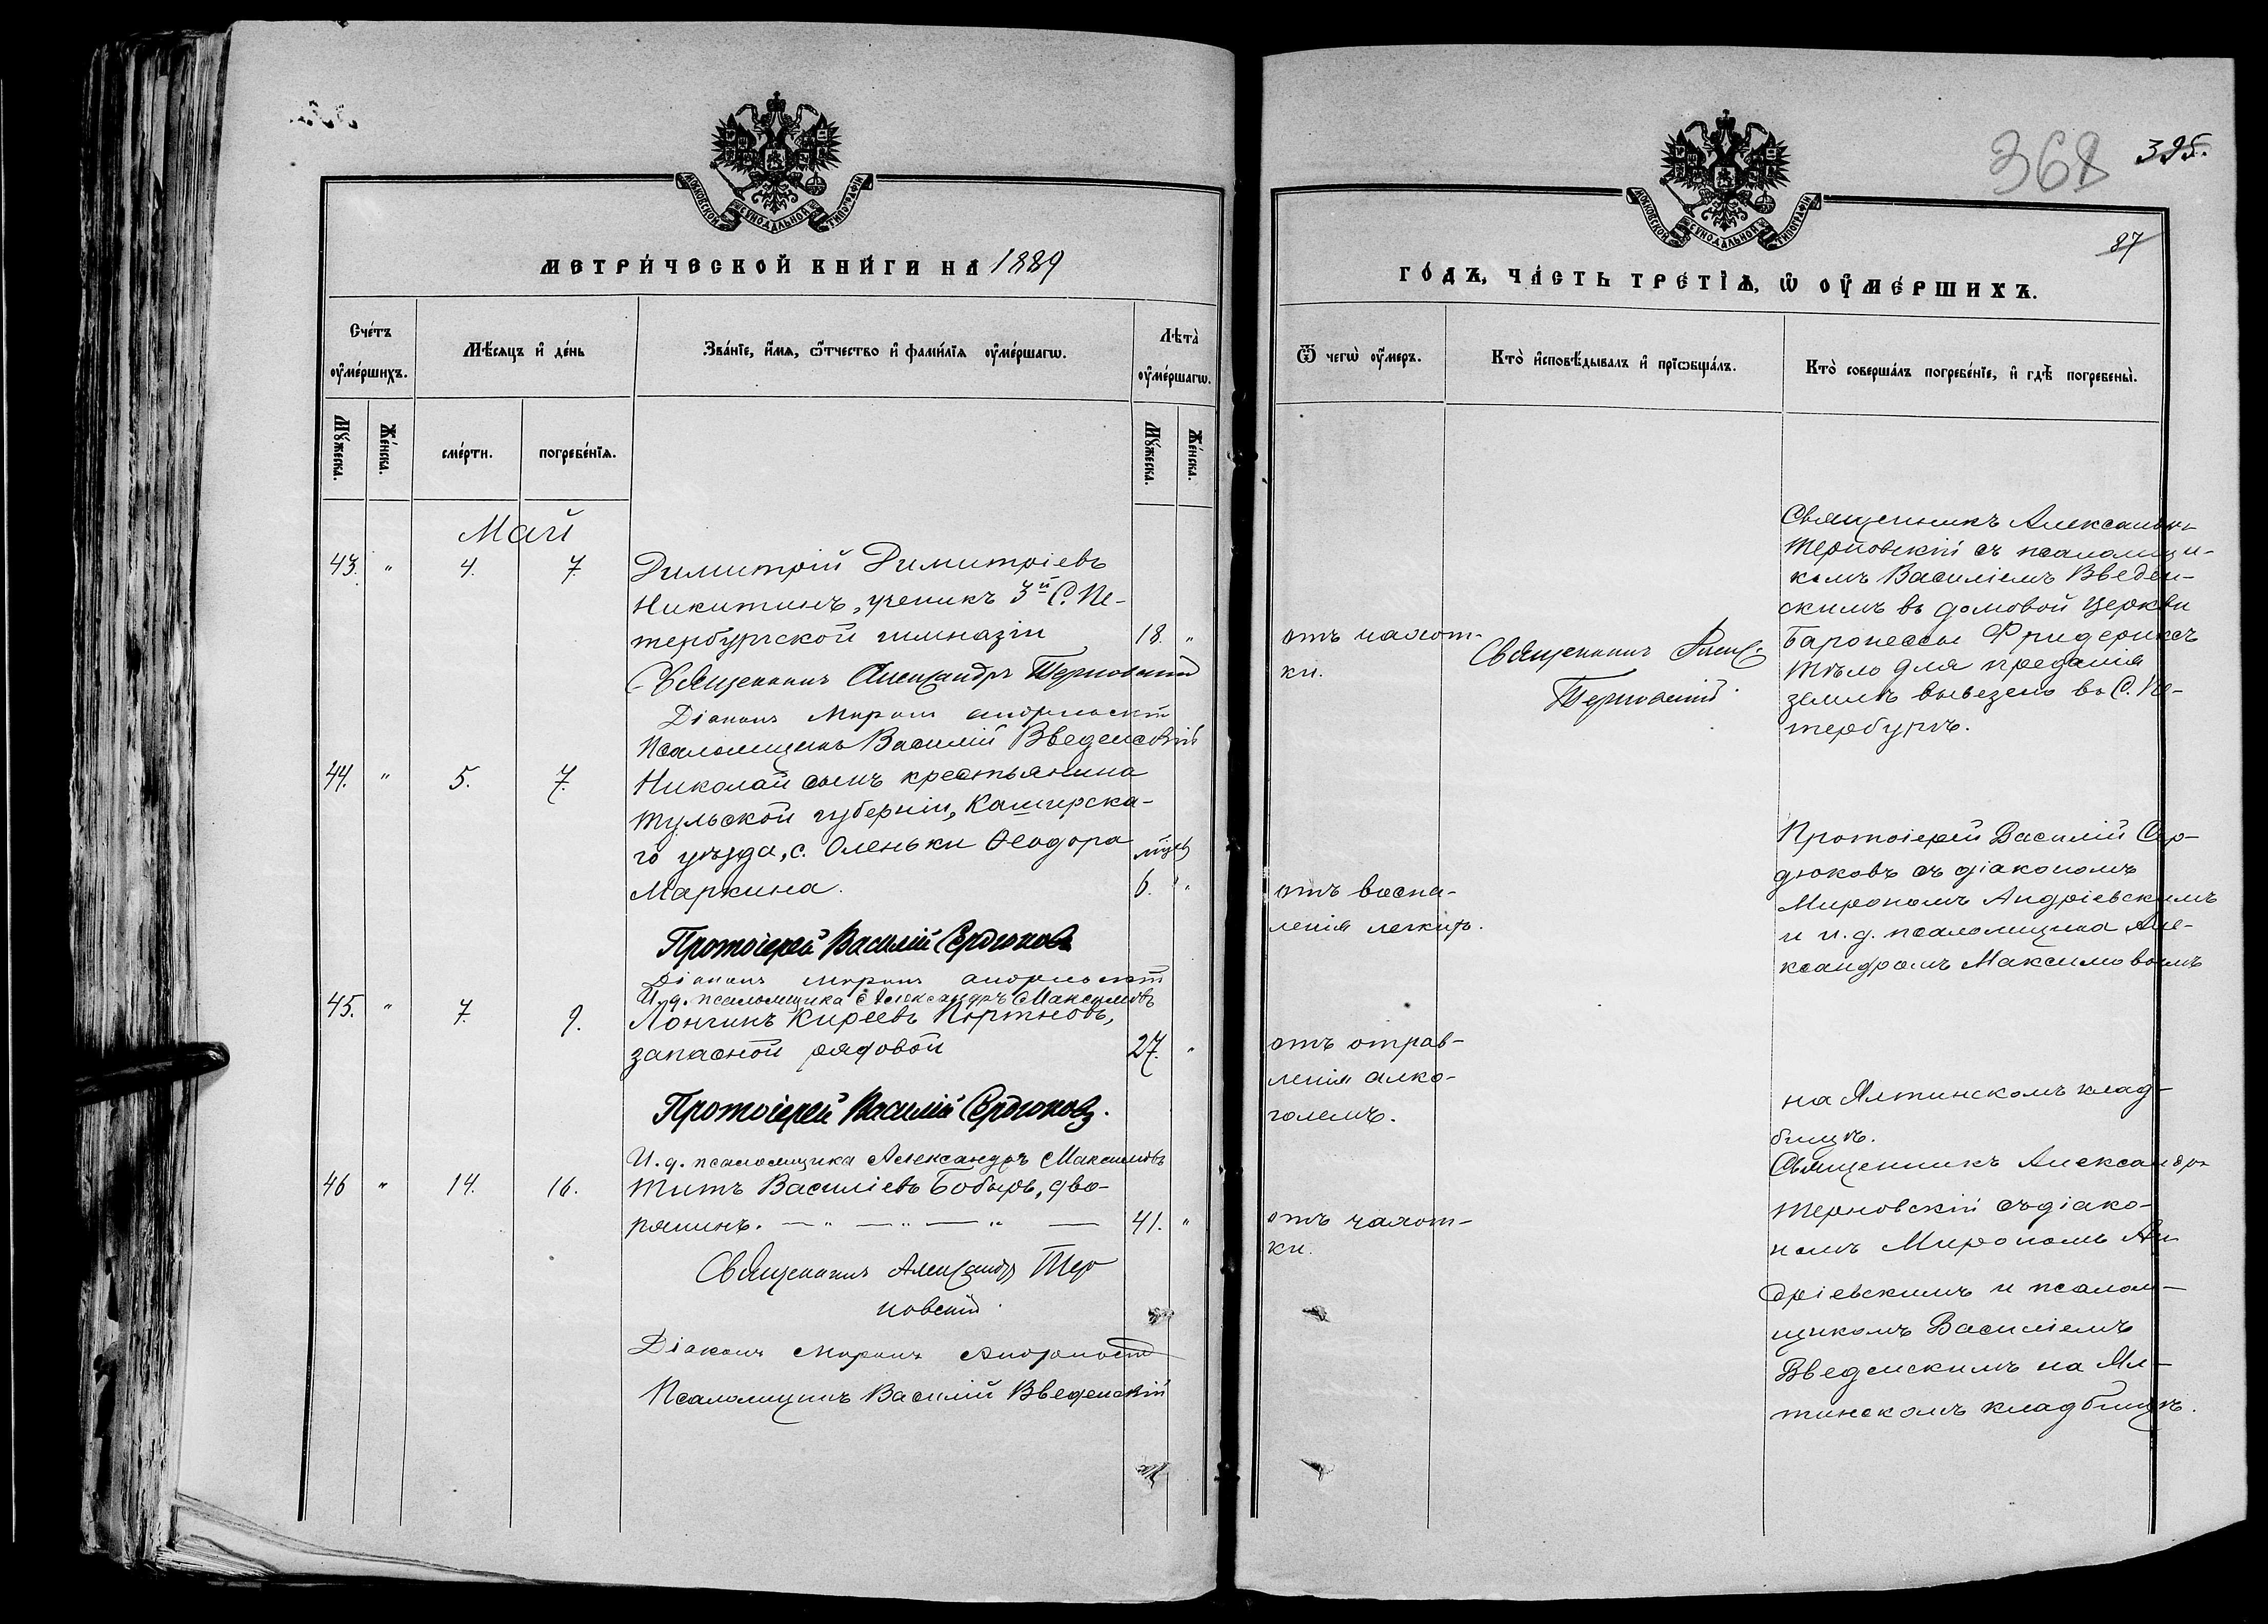 МОСКОВСКОЙ СУНОДАЛЬНОЙ ТИПОГРАФІИ
МЕТРИ́ЧЕСКОЙ КНИ́ГИ НА 1889
Сче́тъ ᲂу҆ме́ршихъ.
Мѣ́сяцъ и҆ де́нь
Зва́нїе, и҆́мя, ѻ҆́тчество и҆ фами́лїя ᲂу҆ме́ршагѡ.
Лѣта̀ ᲂу҆ме́ршагѡ.
Му́жеска.
Же́нска.
сме́рти.
погребе́нїя.
Му́жеска.
Же́нска.
Май
43. " 4. 7. Димитрій Димитріевъ
Никитинъ, ученикъ 3й С. Пе-
тербургской гимназіи 18. "
Священникъ Александръ Терновскій
Діаконъ Миронъ Андріевскій
Псаломщикъ Василій Введенскій
44. " 5. 7. Николай сынъ крестьянина
Тульской губерніи, Каширска-
го уѣзда, с. Оленьки Ѳеодора
Маркина. 6. "
Протоіерей Василій Сердюковъ
Діаконъ Миронъ Андріевскій
И. д. псаломщика Александръ Максимовъ
45. " 7. 9. Лонгинъ Киреевъ
запасной рядовой 27. "
Протоіерей Василій Сердюковъ.
И. д. псаломщика Александръ Максимовъ
46 " 14. 16. Титъ Василіевъ Бобырь, дво-
рянинъ. — " — " — " — 41. "
Священникъ Александръ Тер
новскій.
Діаконъ Миронъ Андріевскій
Псаломщикъ Василій Введенскій
368 395.
МОСКОВСКОЙ СУНОДАЛЬНОЙ ТИПОГРАФІИ
87
ГО́ДЪ, ЧА́СТЬ ТРЕ́ТЇѦ, Ѡ ОУ҆МЕ́РШИХЪ.
Ѿ чегѡ̀ ᲂу҆́меръ.
Кто̀ и҆сповѣ́дывалъ и҆ прїѡбща́лъ.
Кто̀ соверша́лъ погребе́нїе, и҆ гдѣ̀ погребены̀.
отъ чахот-
ки.
Священникъ Алекс.
Терновскій.
Священникъ Александръ
Терновскій съ псаломщи-
комъ Василіемъ Введен-
скимъ въ домовой церкви
Баронессы Фридериксъ
Тѣло для преданія
землѣ вывезено въ С. Пе-
тербургъ.
отъ воспа-
ленія легкихъ.
Протоіерей Василій Сер-
дюковъ съ діакономъ
Мирономъ Андріевскимъ
и и. д. псаломщика Але-
ксандромъ Максимовымъ
отъ отрав-
ленія алко-
големъ.
на Ялтинскомъ клад-
бищѣ.
отъ чахот-
ки.
Священникъ Александръ
Терновскій съ діако-
номъ Мирономъ Ан
дріевскимъ и псалом-
щикомъ Василіемъ
Введенскимъ на Ял-
тинскомъ кладбищѣ.